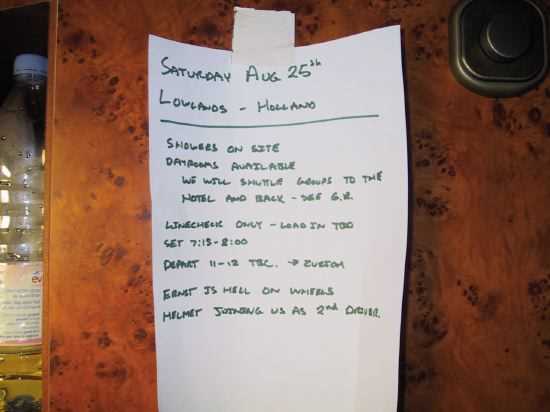 SATURDAY AUG 25th
LOWLANDS - HOLLAND
SHOWERS ON SITE
DAYROOMS AVAILABLE
WE WILL SHUTTLE GROUPS TO THE
HOTEL AND BACK - SEE G.R.
LINECHECK ONLY - LOAD IN TBD
SET 7:15-8:00
DEPART 11-12 TBC. → ZURICH
ERNST IS HELL ON WHEELS
HELMET JOINING US AS 2nd DRIVER